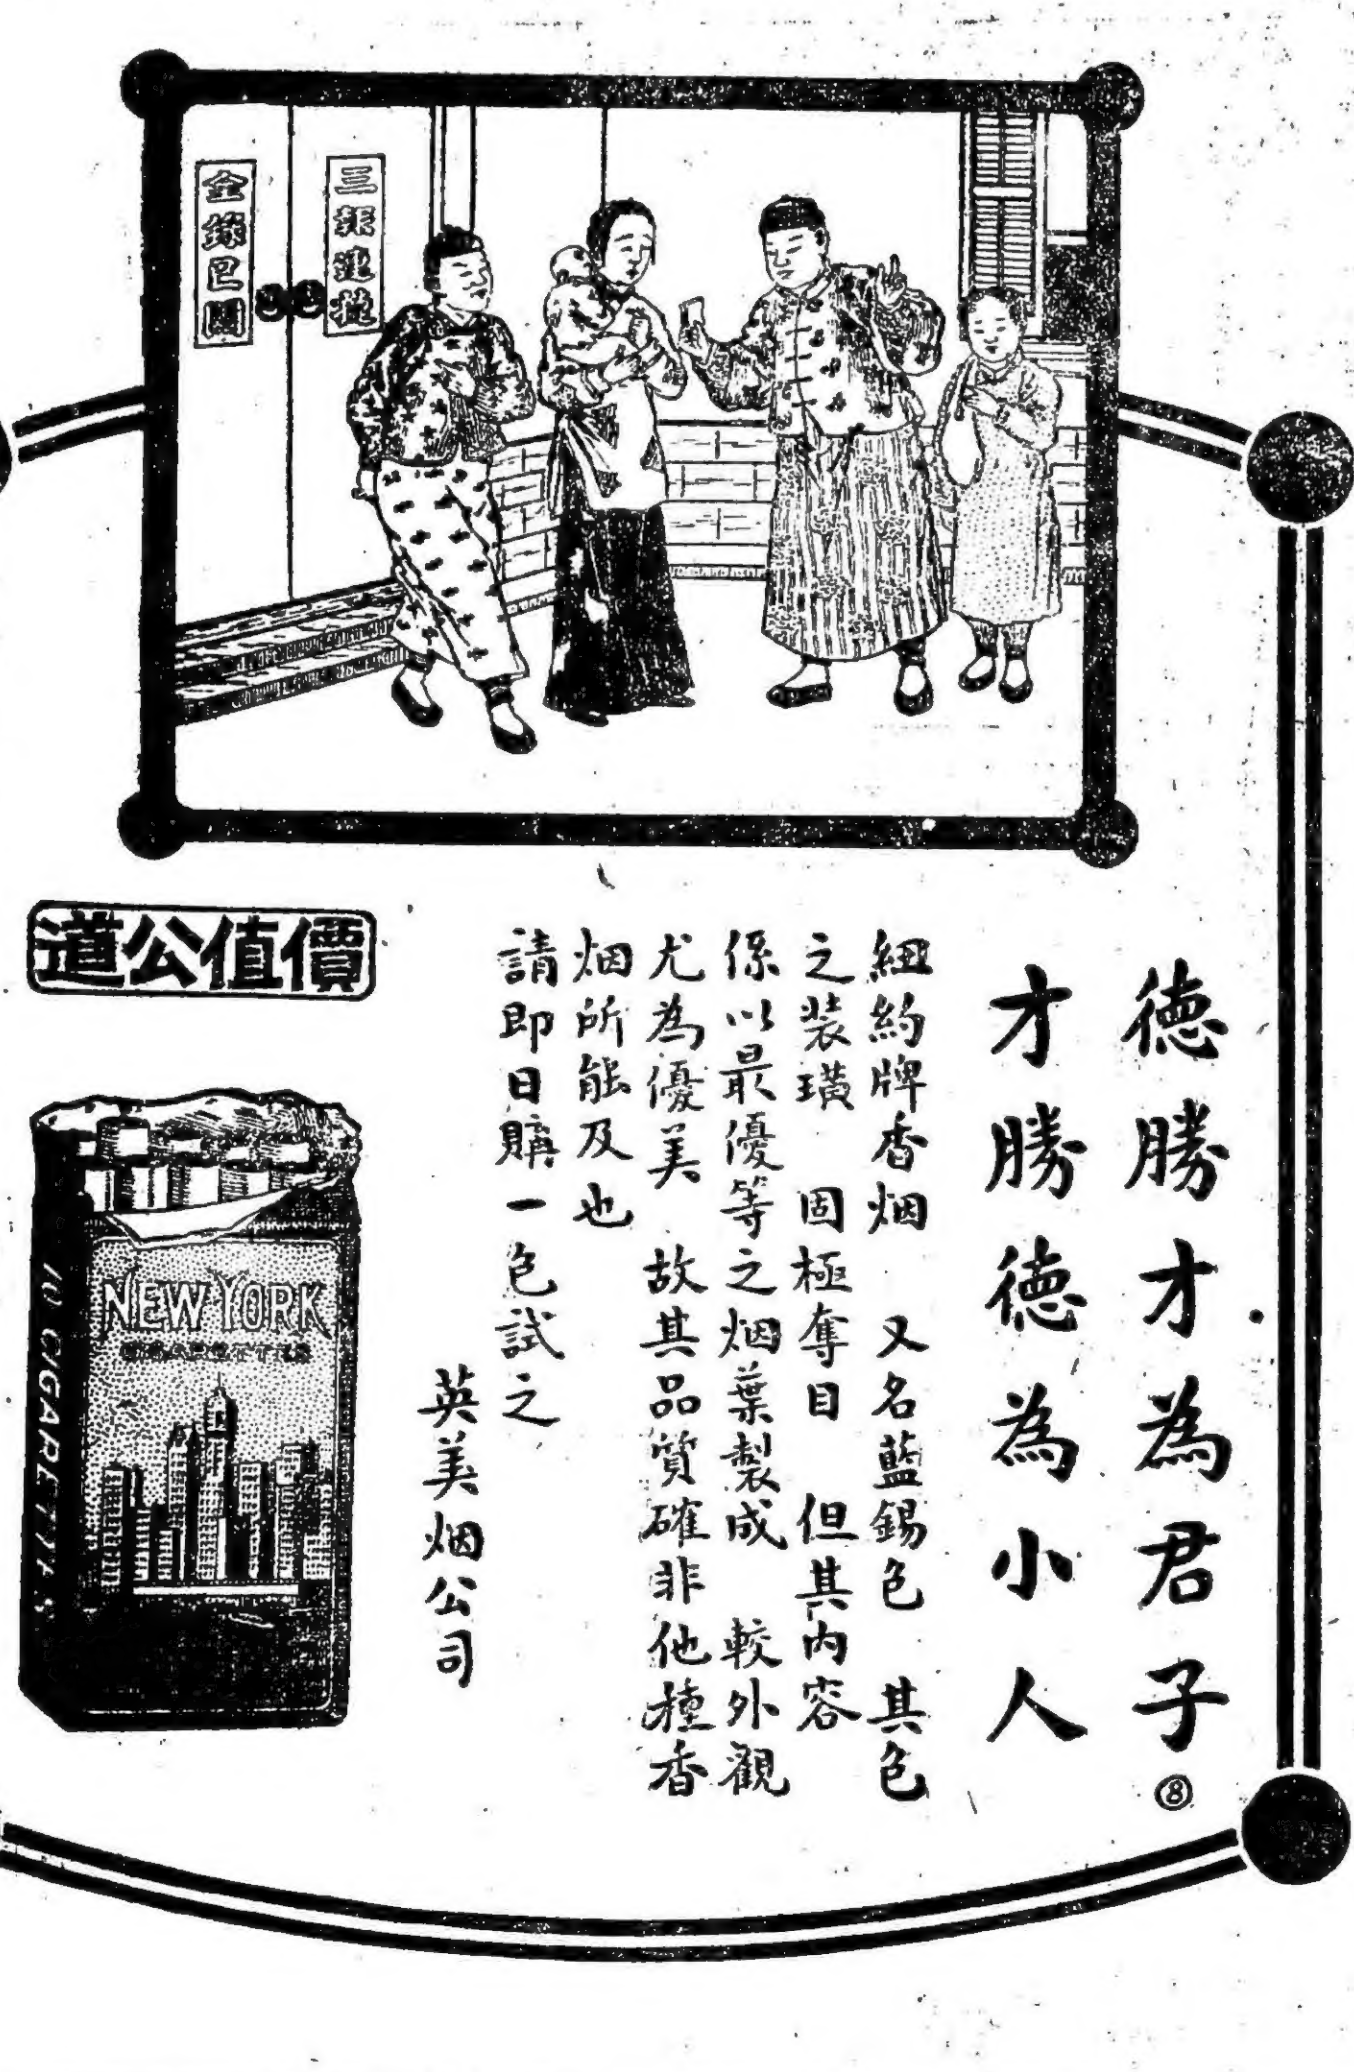 三報連捷
德勝才為君子⑧
才勝德為小人
紐約牌香烟 又名藍錫包 其包
之裝璜 固極奪目 但其內容
係以最優等之烟葉製成 較外觀
尤為優美 故其品質確非他種香
烟所能及也
請即日購一包試之
英美烟公司
價值公道
NEW YORK
CIGARETTES
10 CIGARETTES